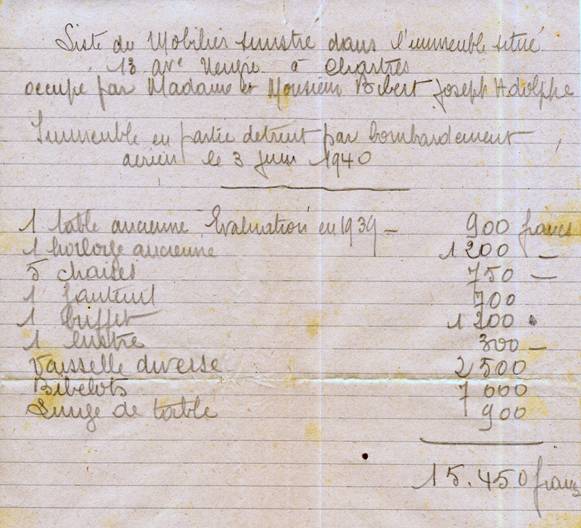 Liste du Mobilier sinistré dans l'immeuble situé
13 ave à Chartres
occupé par Madame et Monsieur Bibert Joseph Adolphe
Immeuble en partie détruit par bombardement
aérien le 3 juin 1940
1 table ancienne Evaluation en 1939 — 900 francs
1 horloge ancienne 1 200 —
5 chaises 750 —
1 fauteuil 700
1 buffet 1 200
1 lustre 300 —
Vaisselle diverse 2 500
Bibelots 7 000
Linge de table 900
15.450 francs